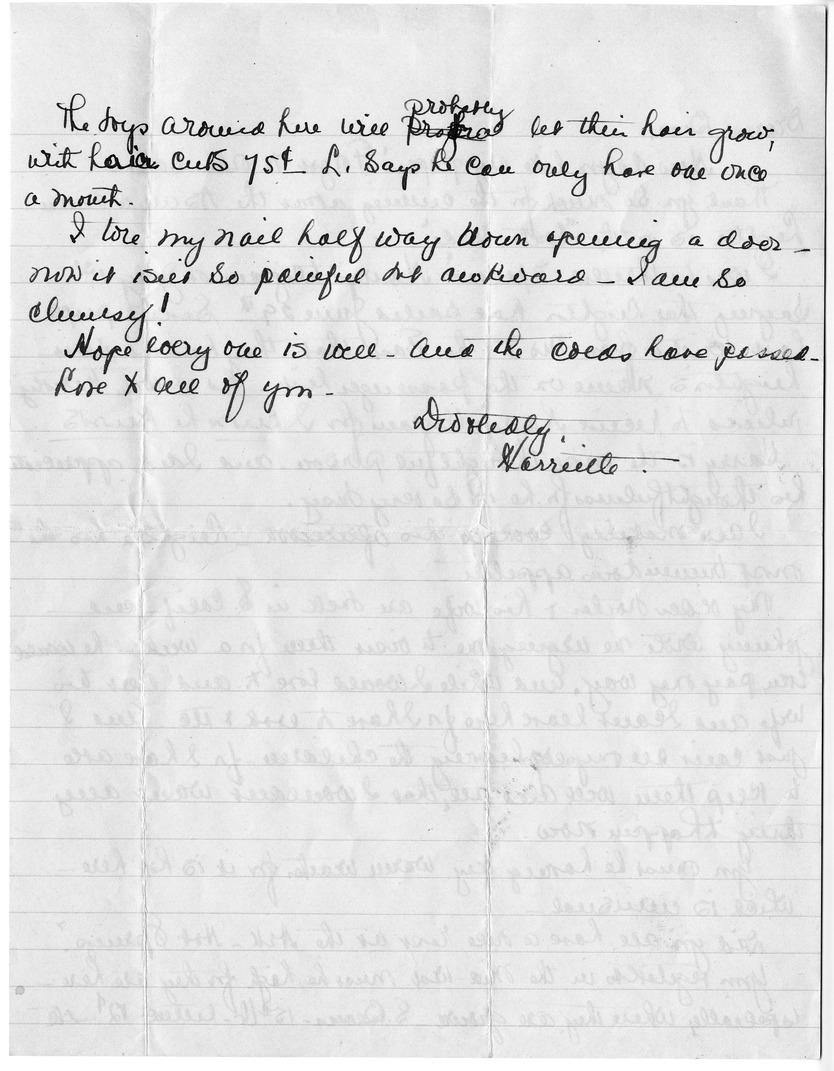 The boys around here will probably let their hair grow,
with hair cuts 75¢ L. Says he can only have one once
a month.
I tore my nail half way down opening a door -
now it isn't so painful but awkward - I am so
clumsy!
Hope every one is well - and the colds have passed -
Love to all of you -
Devotedly,
Harriette.